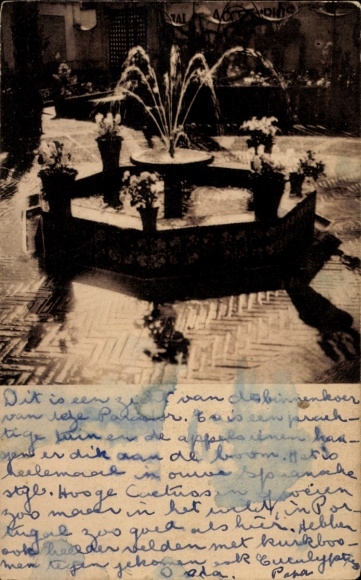 Dit is een zicht van de binnenkoer
van Pa is een prach-
tige tuin en de appelsienen han-
gen er dik aan de boom. Het is
heelemaal in ouwe Spaansche
styl. Hooge Cactuss in groeien
zoo maar in het in Por
tugal zoo goed als hier. Hebben
ook heelder velden met kurkboo-
men tegen gekomen ook Eucalypts
Papa